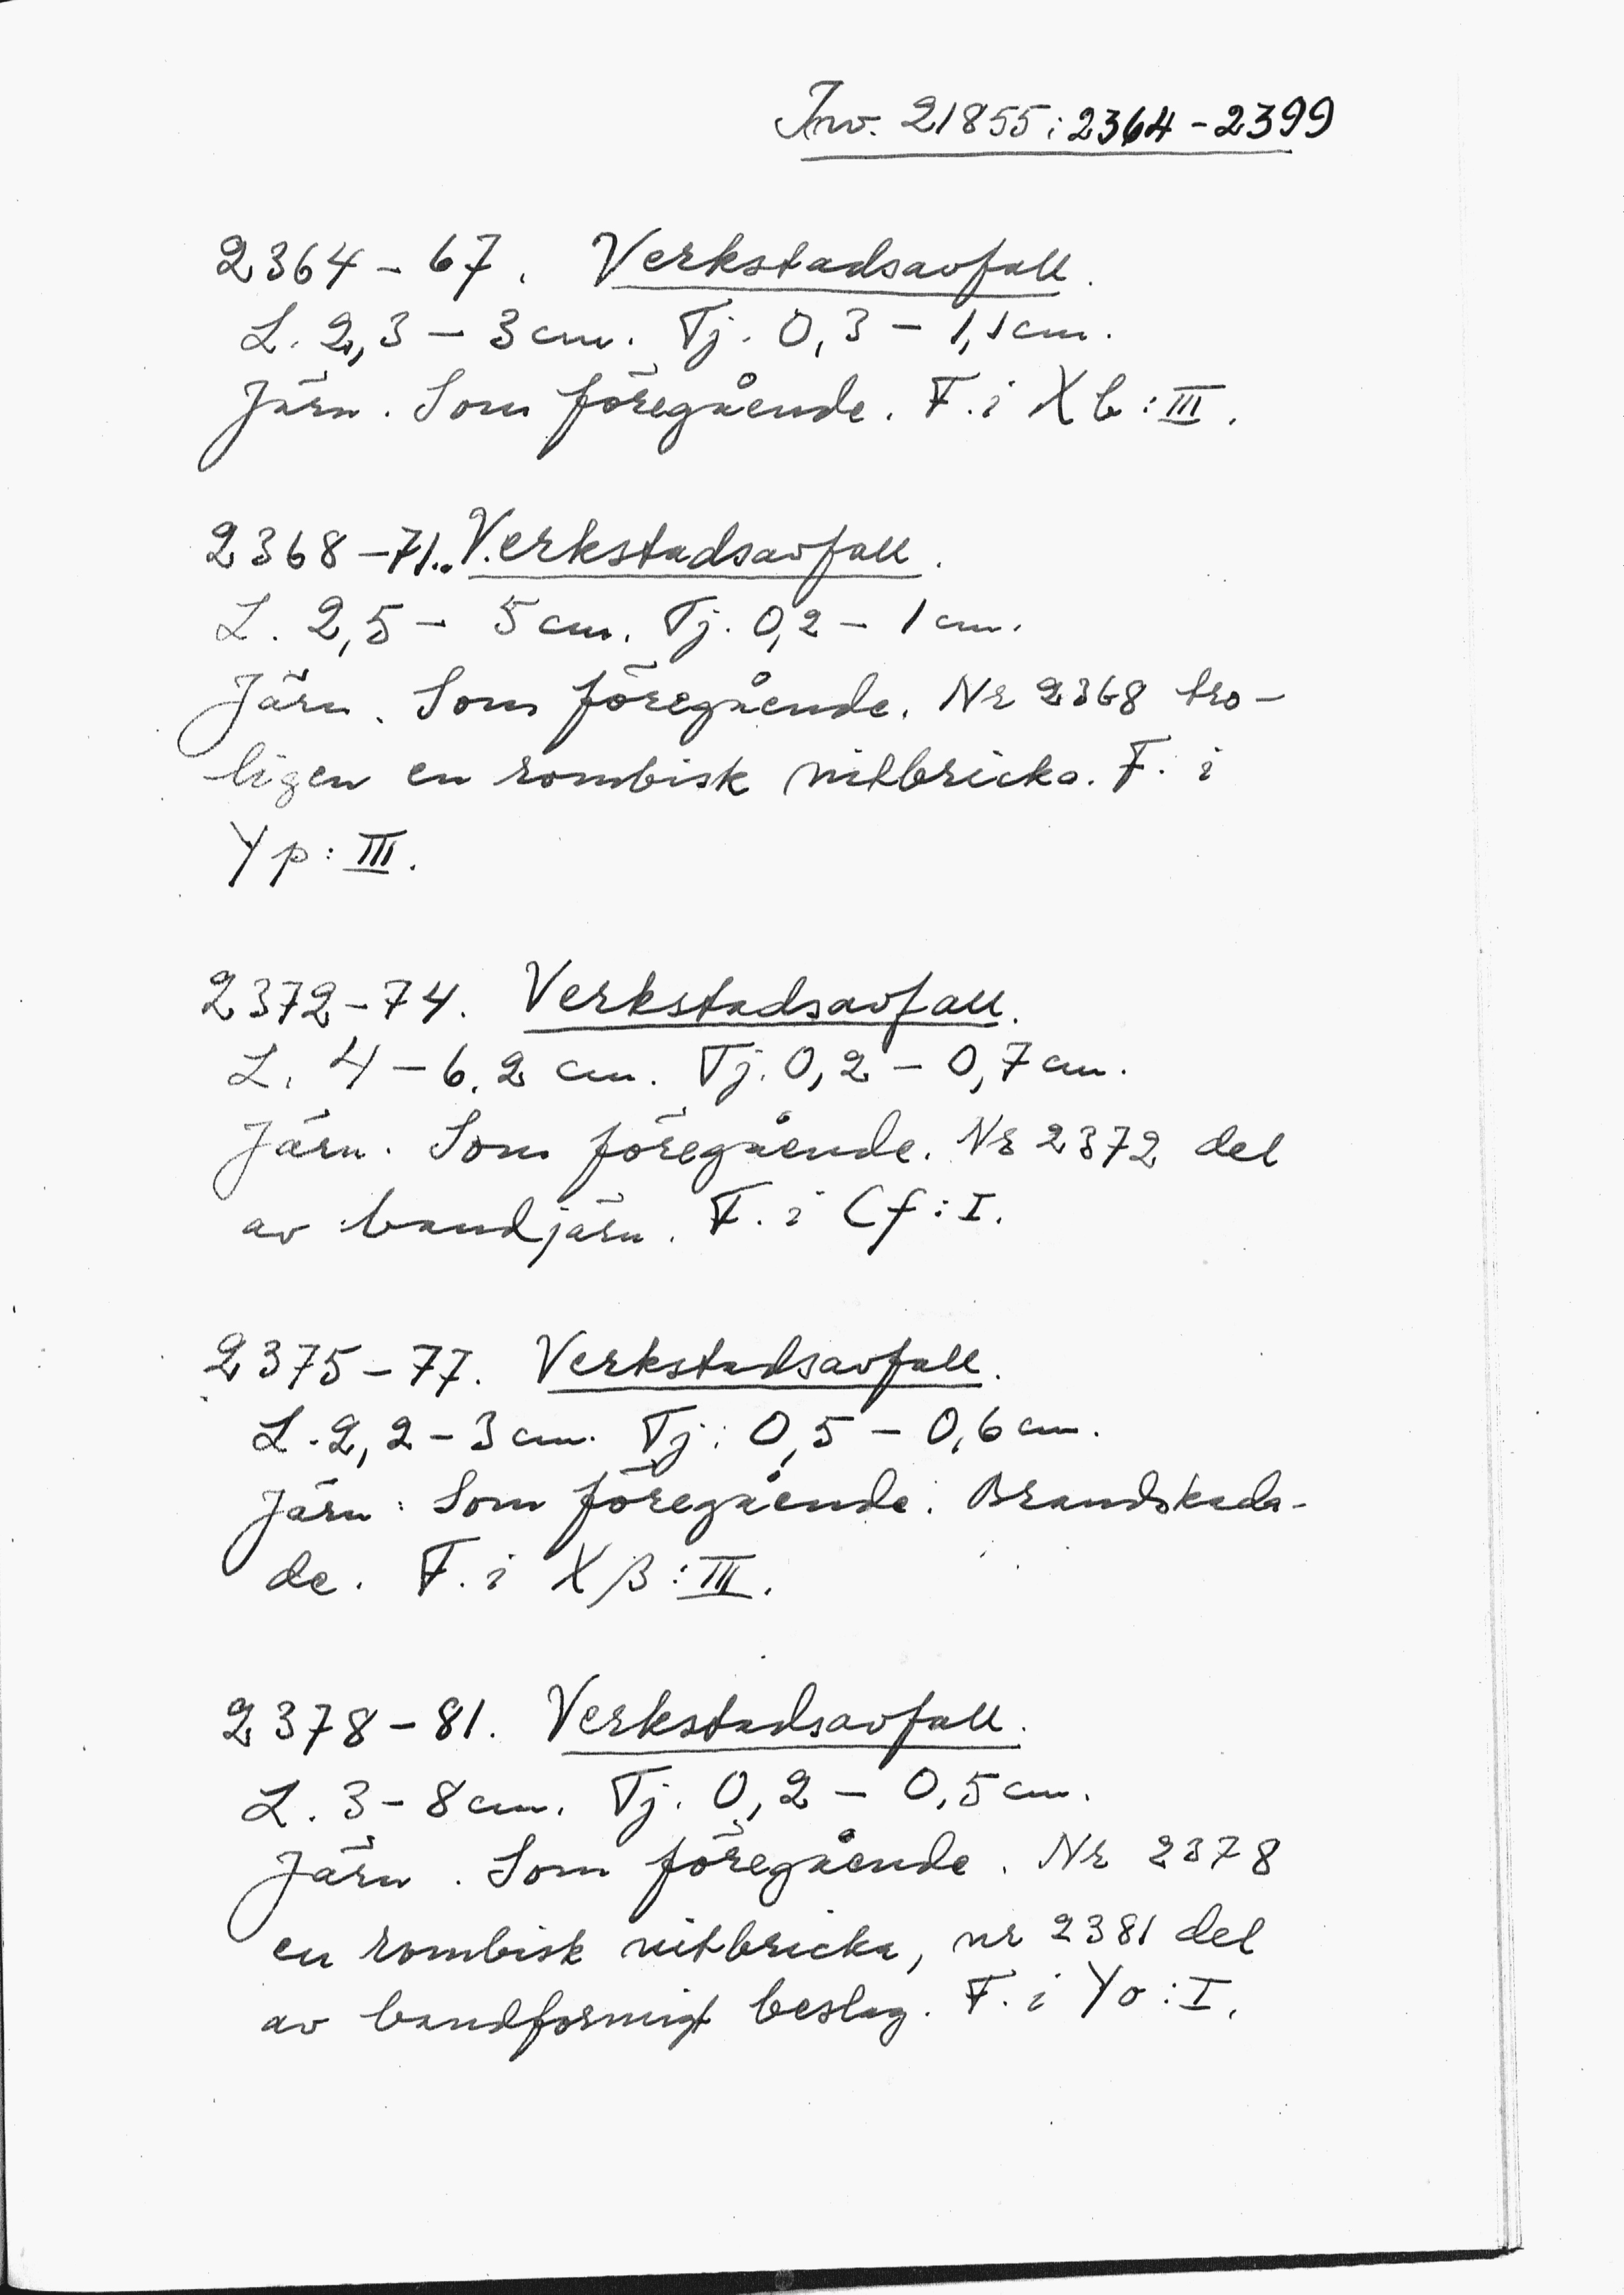 Inv. 21855:2364-2399
2364-67. Verkstadsavfall.
L. 2,3 - 3 cm. Tj. 0,3 - 1,1 cm.
Järn. Som föregående. F. i Xb:III.
2368-71. Verkstadsavfall.
L. 2,5 - 5 cm. Tj. 0,2 - 1 cm.
Järn. Som föregående. Nr 2368 tro-
ligen en rombisk nitbricka. F. i
Yp:III.
2372-74. Verkstadsavfall.
L. 4 - 6,2 cm. Tj. 0,2 - 0,7 cm.
Järn. Som föregående. Nr 2372 del
av bandjärn. F. i Cf:I.
2375-77. Verkstadsavfall.
L. 2,2 - 3 cm. Tj. 0,5 - 0,6 cm.
Järn. Som föregående. Brandskada-
de. F. i Xβ:III.
2378-81. Verkstadsavfall.
L. 3 - 8 cm. Tj. 0,2 - 0,5 cm.
Järn. Som föregående. Nr 2378
en rombisk nitbricka, nr 2381 del
av bandformigt beslag. F. i Yo:I.